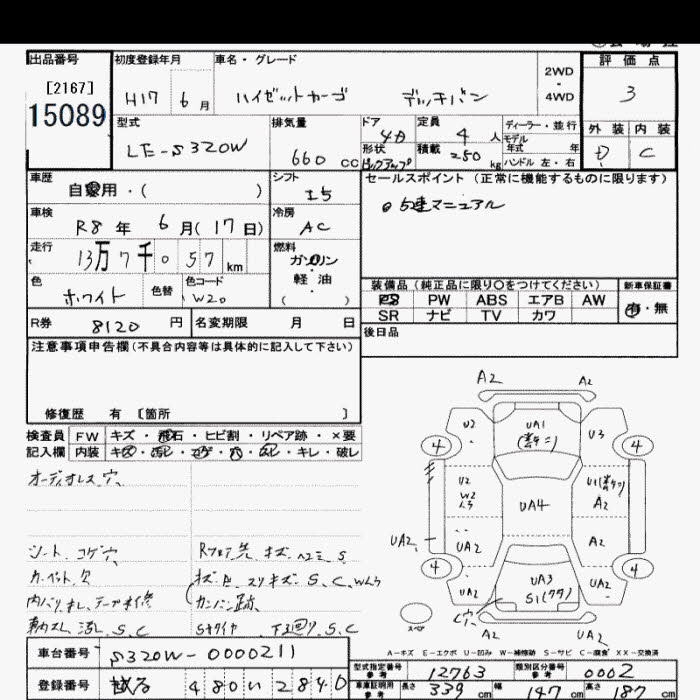 出品番号
[2167]
15089
初度登録年月
H17 6月
車名・グレード
ハイゼットカーゴ デッキバン
2WD
・
4WD
評価点
3
外装 内装
D C
型式
LE-S320W
排気量
660 cc
ドア
4D
形状
ピックアップ
定員
4 人
積載
250 kg
ディーラー・並行
モデル
年式 年
ハンドル 左・右
車歴
自家用・( )
シフト
I5
セールスポイント (正常に機能するものに限ります)
5速マニュアル
車検
R8年 6月(17日)
冷房
AC
走行
13万7千057 km
燃料
ガソリン
軽油
( )
色
ホワイト
色替
色コード
W20
装備品(純正品に限り○をつけてください)
新車保証書
PS PW ABS エアB AW
SR ナビ TV カワ
有・無
R券 8120 円
名変期限 月 日
後日品
注意事項申告欄(不具合内容等は具体的に記入して下さい)
修復歴 有 [箇所 ]
検査員
記入欄
FW キズ・飛石・ヒビ割・リペア跡・×要
内装 キズ・汚レ・コゲ・穴・スレ・キレ・破レ
オーディオレス、穴
シート、コゲ穴
カーペット、穴
内バリ、キレ、テープ補修
荷ムラ、汚レ、S、C
Rフロア先、キズ、ヘコミ、S
キズ、E、スリキズ、S、C、Wムラ
カンバン跡
Sタイヤ 下廻り、S、C
A2 A2
U2 UA1 U3
4 4
U2
W2
UA4
A2
UA2 UA2 A2
4 4
UA2 UA3 UA2
S1(ワタ)
穴
スペア
A2 UA2
A-キズ E-エクボ U-凹み W-補修跡 S-サビ C-腐食 XX-交換済
車台番号 S320W-0000211
登録番号 480 い 2840
型式指定番号
参考
12763
類別区分番号
参考
0002
車庫証明用
参考
長さ 339 cm 幅 147 cm 高さ 187 cm